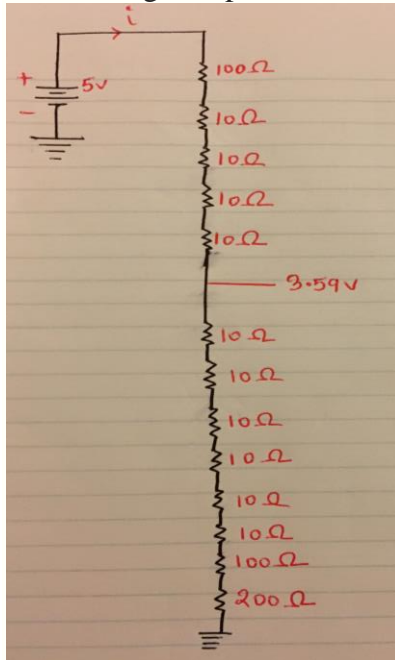 i
+
5v
-
100Ω
10Ω
10Ω
10Ω
10Ω
3.59v
10Ω
10Ω
10Ω
10Ω
10Ω
10Ω
100Ω
200Ω